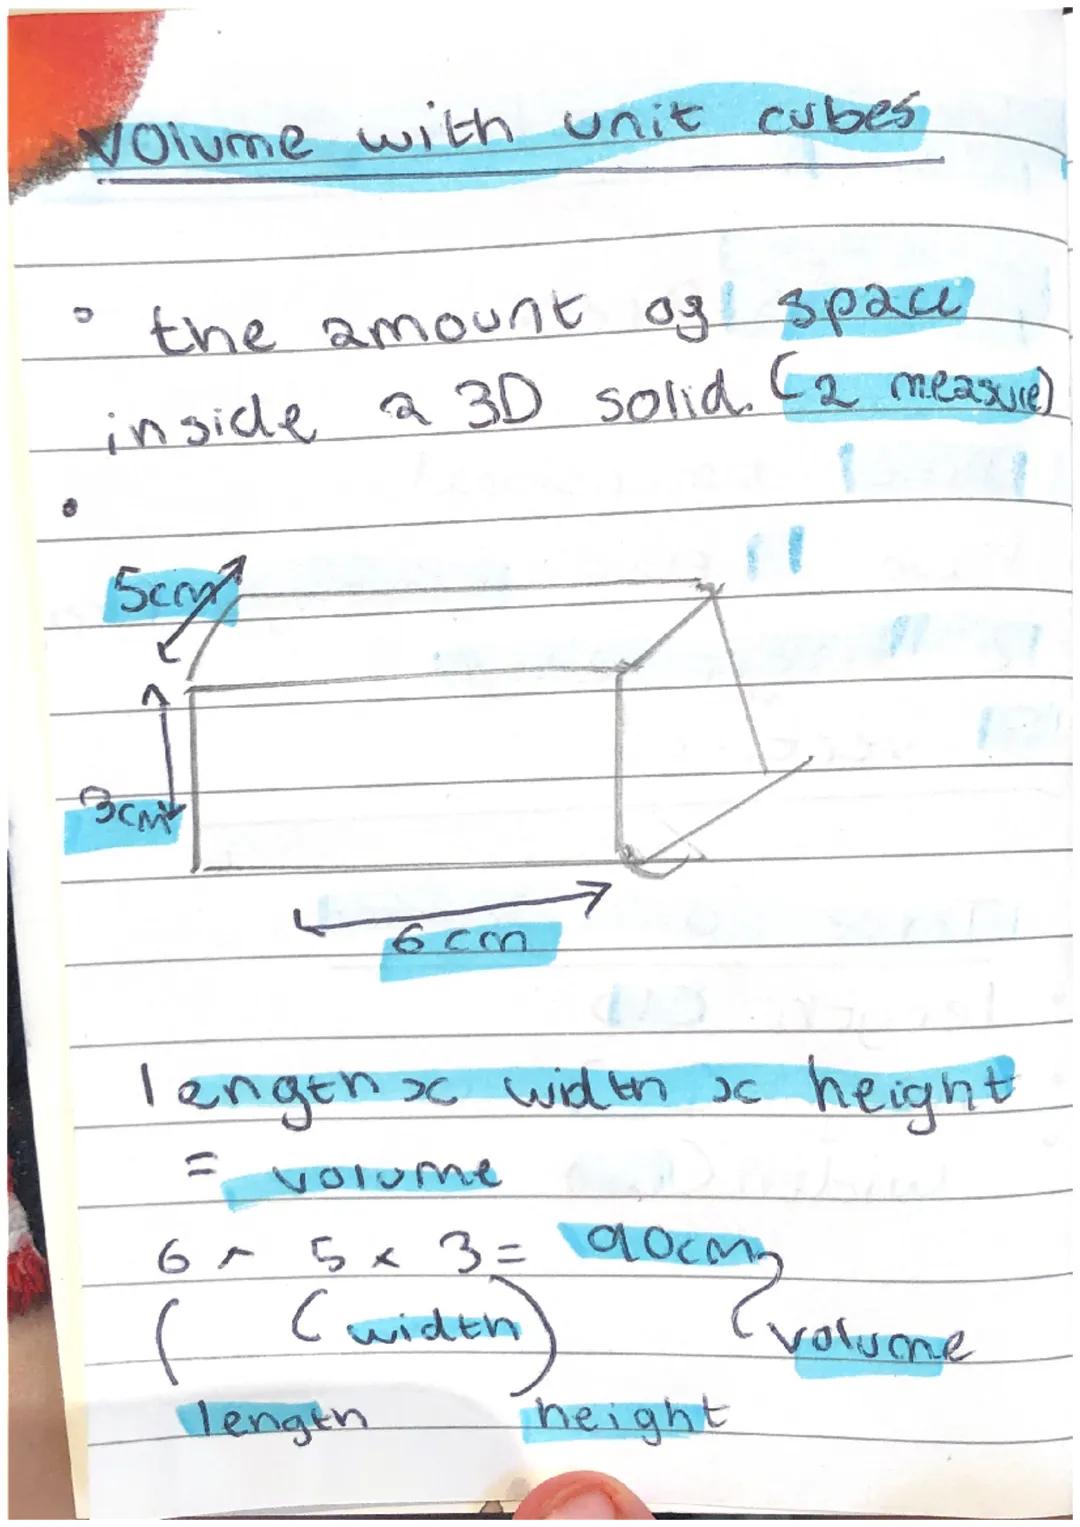 volume with unit cubes
• the amount of space
inside a 3D solid. (a measure)
•
5cm
3cm
6cm
length x width x height
= volume
6 x 5 x 3 = 90cm
(width)
volume
length height